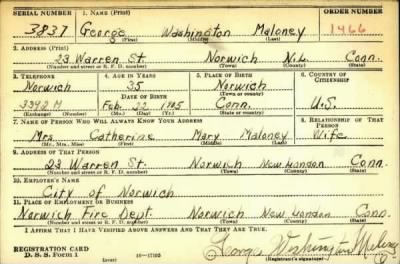 SERIAL NUMBER 1. NAME (Print) ORDER NUMBER
3837 George Washington Maloney 1466
(First) (Middle) (Last)
2. ADDRESS (Print)
23 Warren St. Norwich N.L. Conn.
(Number and street or R. F. D. number) (Town) (County) (State)
3. TELEPHONE 4. AGE IN YEARS 5. PLACE OF BIRTH 6. COUNTRY OF CITIZENSHIP
Norwich 35 Norwich
DATE OF BIRTH (Town or county)
3392 M Feb. 22 1905 Conn. U.S.
(Exchange) (Number) (Mo.) (Day) (Yr.) (State or country)
7. NAME OF PERSON WHO WILL ALWAYS KNOW YOUR ADDRESS 8. RELATIONSHIP OF THAT PERSON
Mrs. Catherine Mary Maloney Wife
(Mr., Mrs., Miss) (First) (Middle) (Last)
9. ADDRESS OF THAT PERSON
23 Warren St. Norwich New London Conn.
(Number and street or R. F. D. number) (Town) (County) (State)
10. EMPLOYER'S NAME
City of Norwich
11. PLACE OF EMPLOYMENT OR BUSINESS
Norwich Fire Dept. Norwich New London Conn.
(Number and street or R. F. D. number) (Town) (County) (State)
I AFFIRM THAT I HAVE VERIFIED ABOVE ANSWERS AND THAT THEY ARE TRUE.
REGISTRATION CARD George Washington Maloney
D. S. S. Form 1 (over) 16—17105 (Registrant's signature)